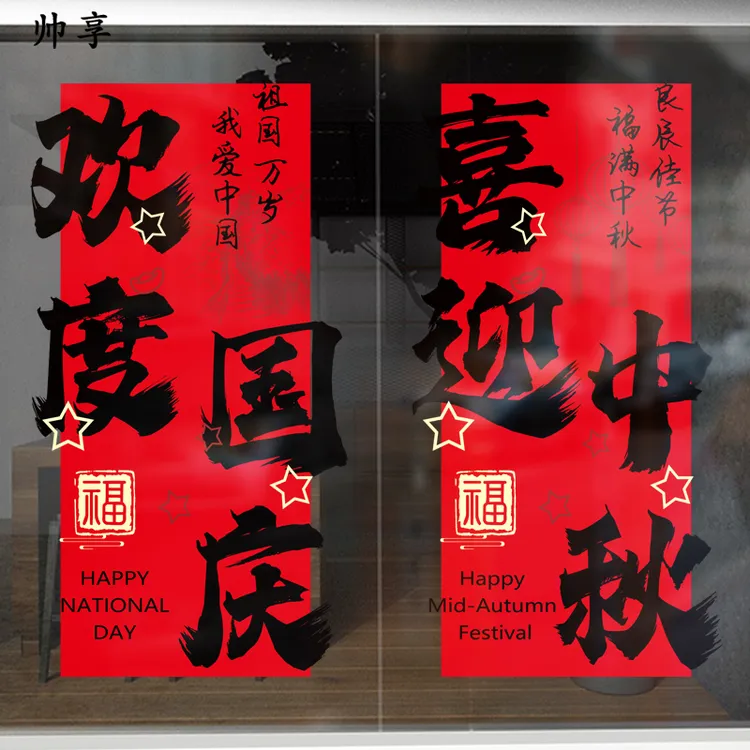 帅享
欢度
国庆
祖国万岁
我爱中国
福
HAPPY
NATIONAL
DAY
喜迎
中秋
良辰佳节
福满中秋
福
Happy
Mid-Autumn
Festival